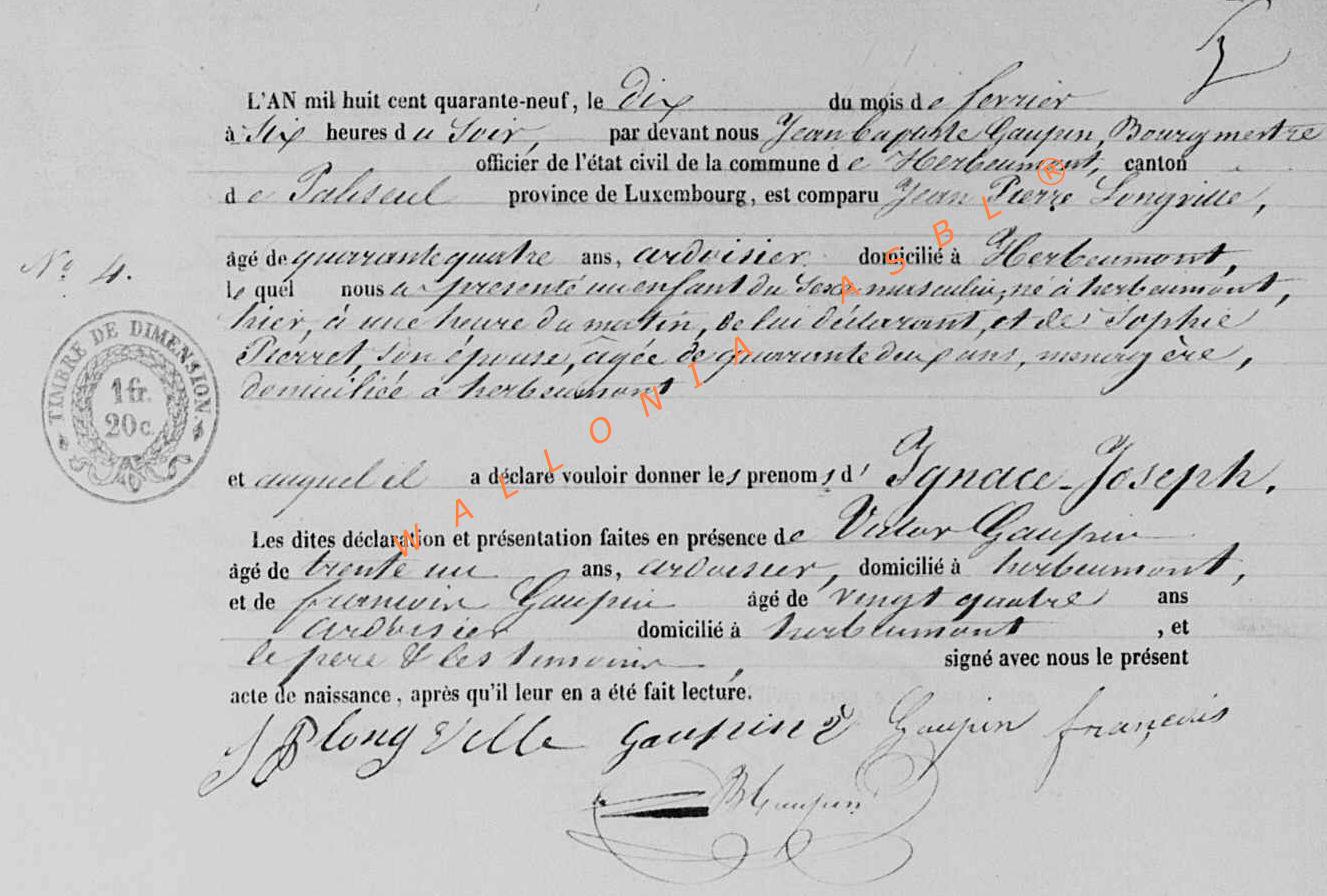 L'AN mil huit cent quarante-neuf, le dix du mois de fevrier
à Six heures du Soir, par devant nous Jean baptiste Gaupin, Bourgmestre
officier de l'état civil de la commune de Herbeumont, canton
de Paliseul province de Luxembourg, est comparu Jean Pierre Longville,
âgé de quarante quatre ans, ardoisier domicilié à Herbeumont,
le quel nous a presenté un enfant du Sexe masculin, né à herbeumont,
Nº 4.
hier, à une heure du matin, de lui déclarant, et de Sophie
Pierret, Son épouse, âgée de quarante deux ans, menagère,
domiciliée à herbeumont
TIMBRE DE DIMENSION.
1 fr.
20 c.
et auquel il a déclaré vouloir donner les prenoms d' Ignace-Joseph.
Les dites déclaration et présentation faites en présence de Victor Gaupin
âgé de trente un ans, ardoisier, domicilié à herbeumont,
et de francois Gaupin âgé de vingt quatre ans
ardoisier domicilié à herbeumont , et
le pere & les temoins, signé avec nous le présent
acte de naissance, après qu'il leur en a été fait lecture.
JP longville Gaupin Gaupin françois
JB Gaupin
WALLONIA ASBL ®